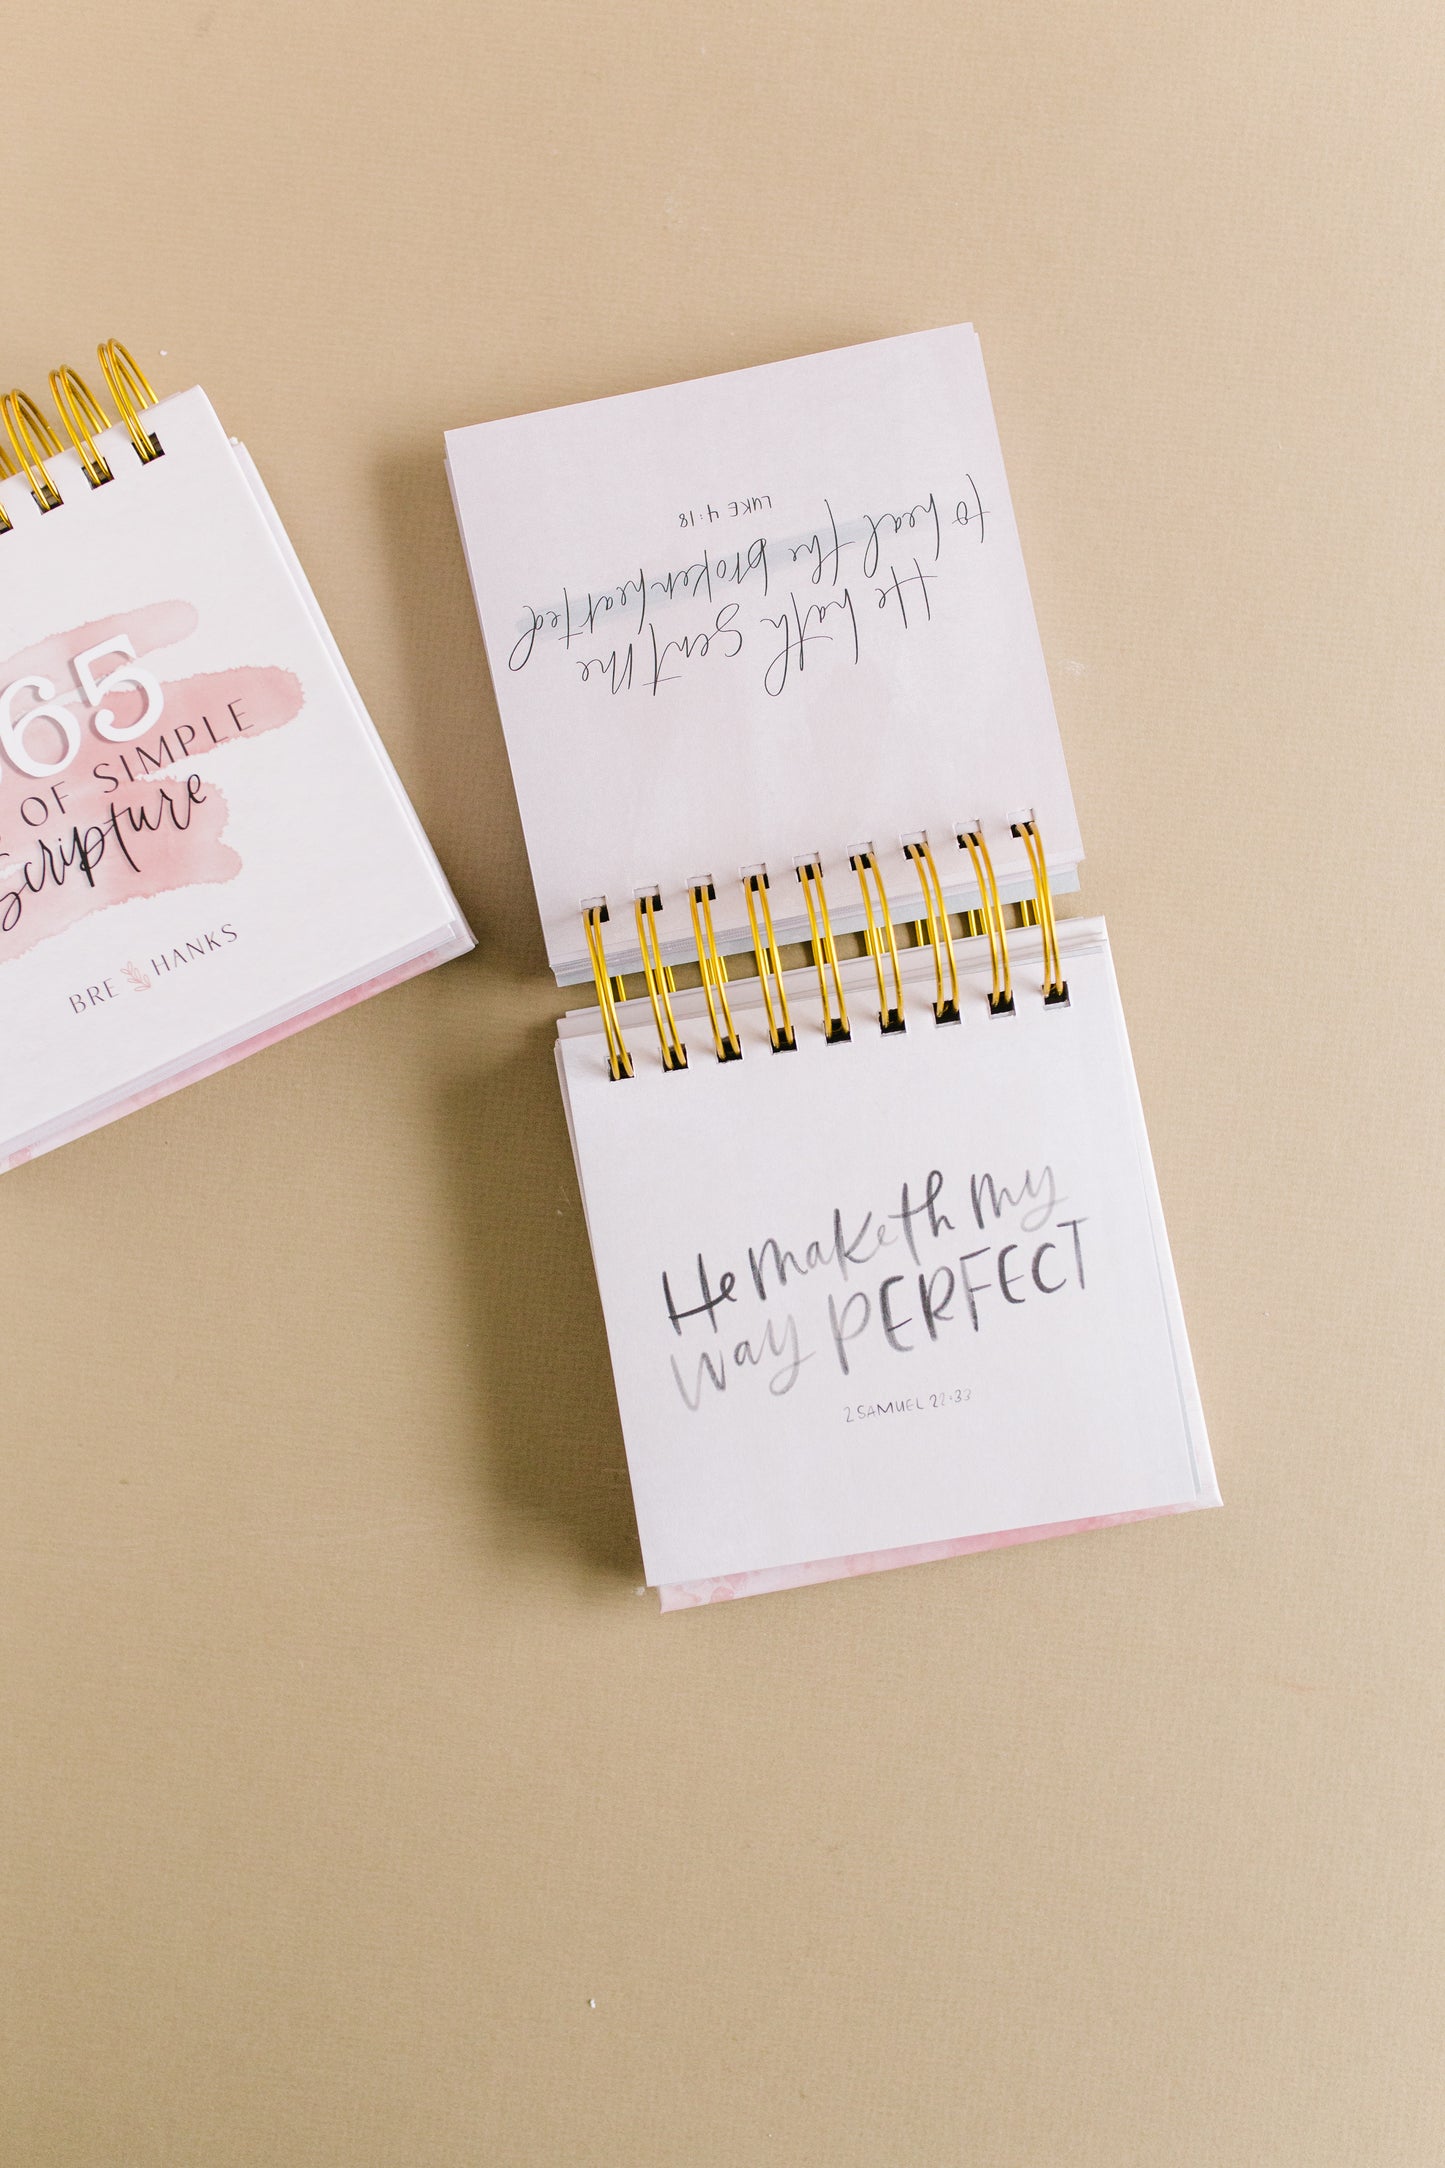 65
OF SIMPLE
Scripture
BRE HANKS
He hath sent me
to heal the brokenhearted
LUKE 4:18
He maketh my
way PERFECT
2 SAMUEL 22:33